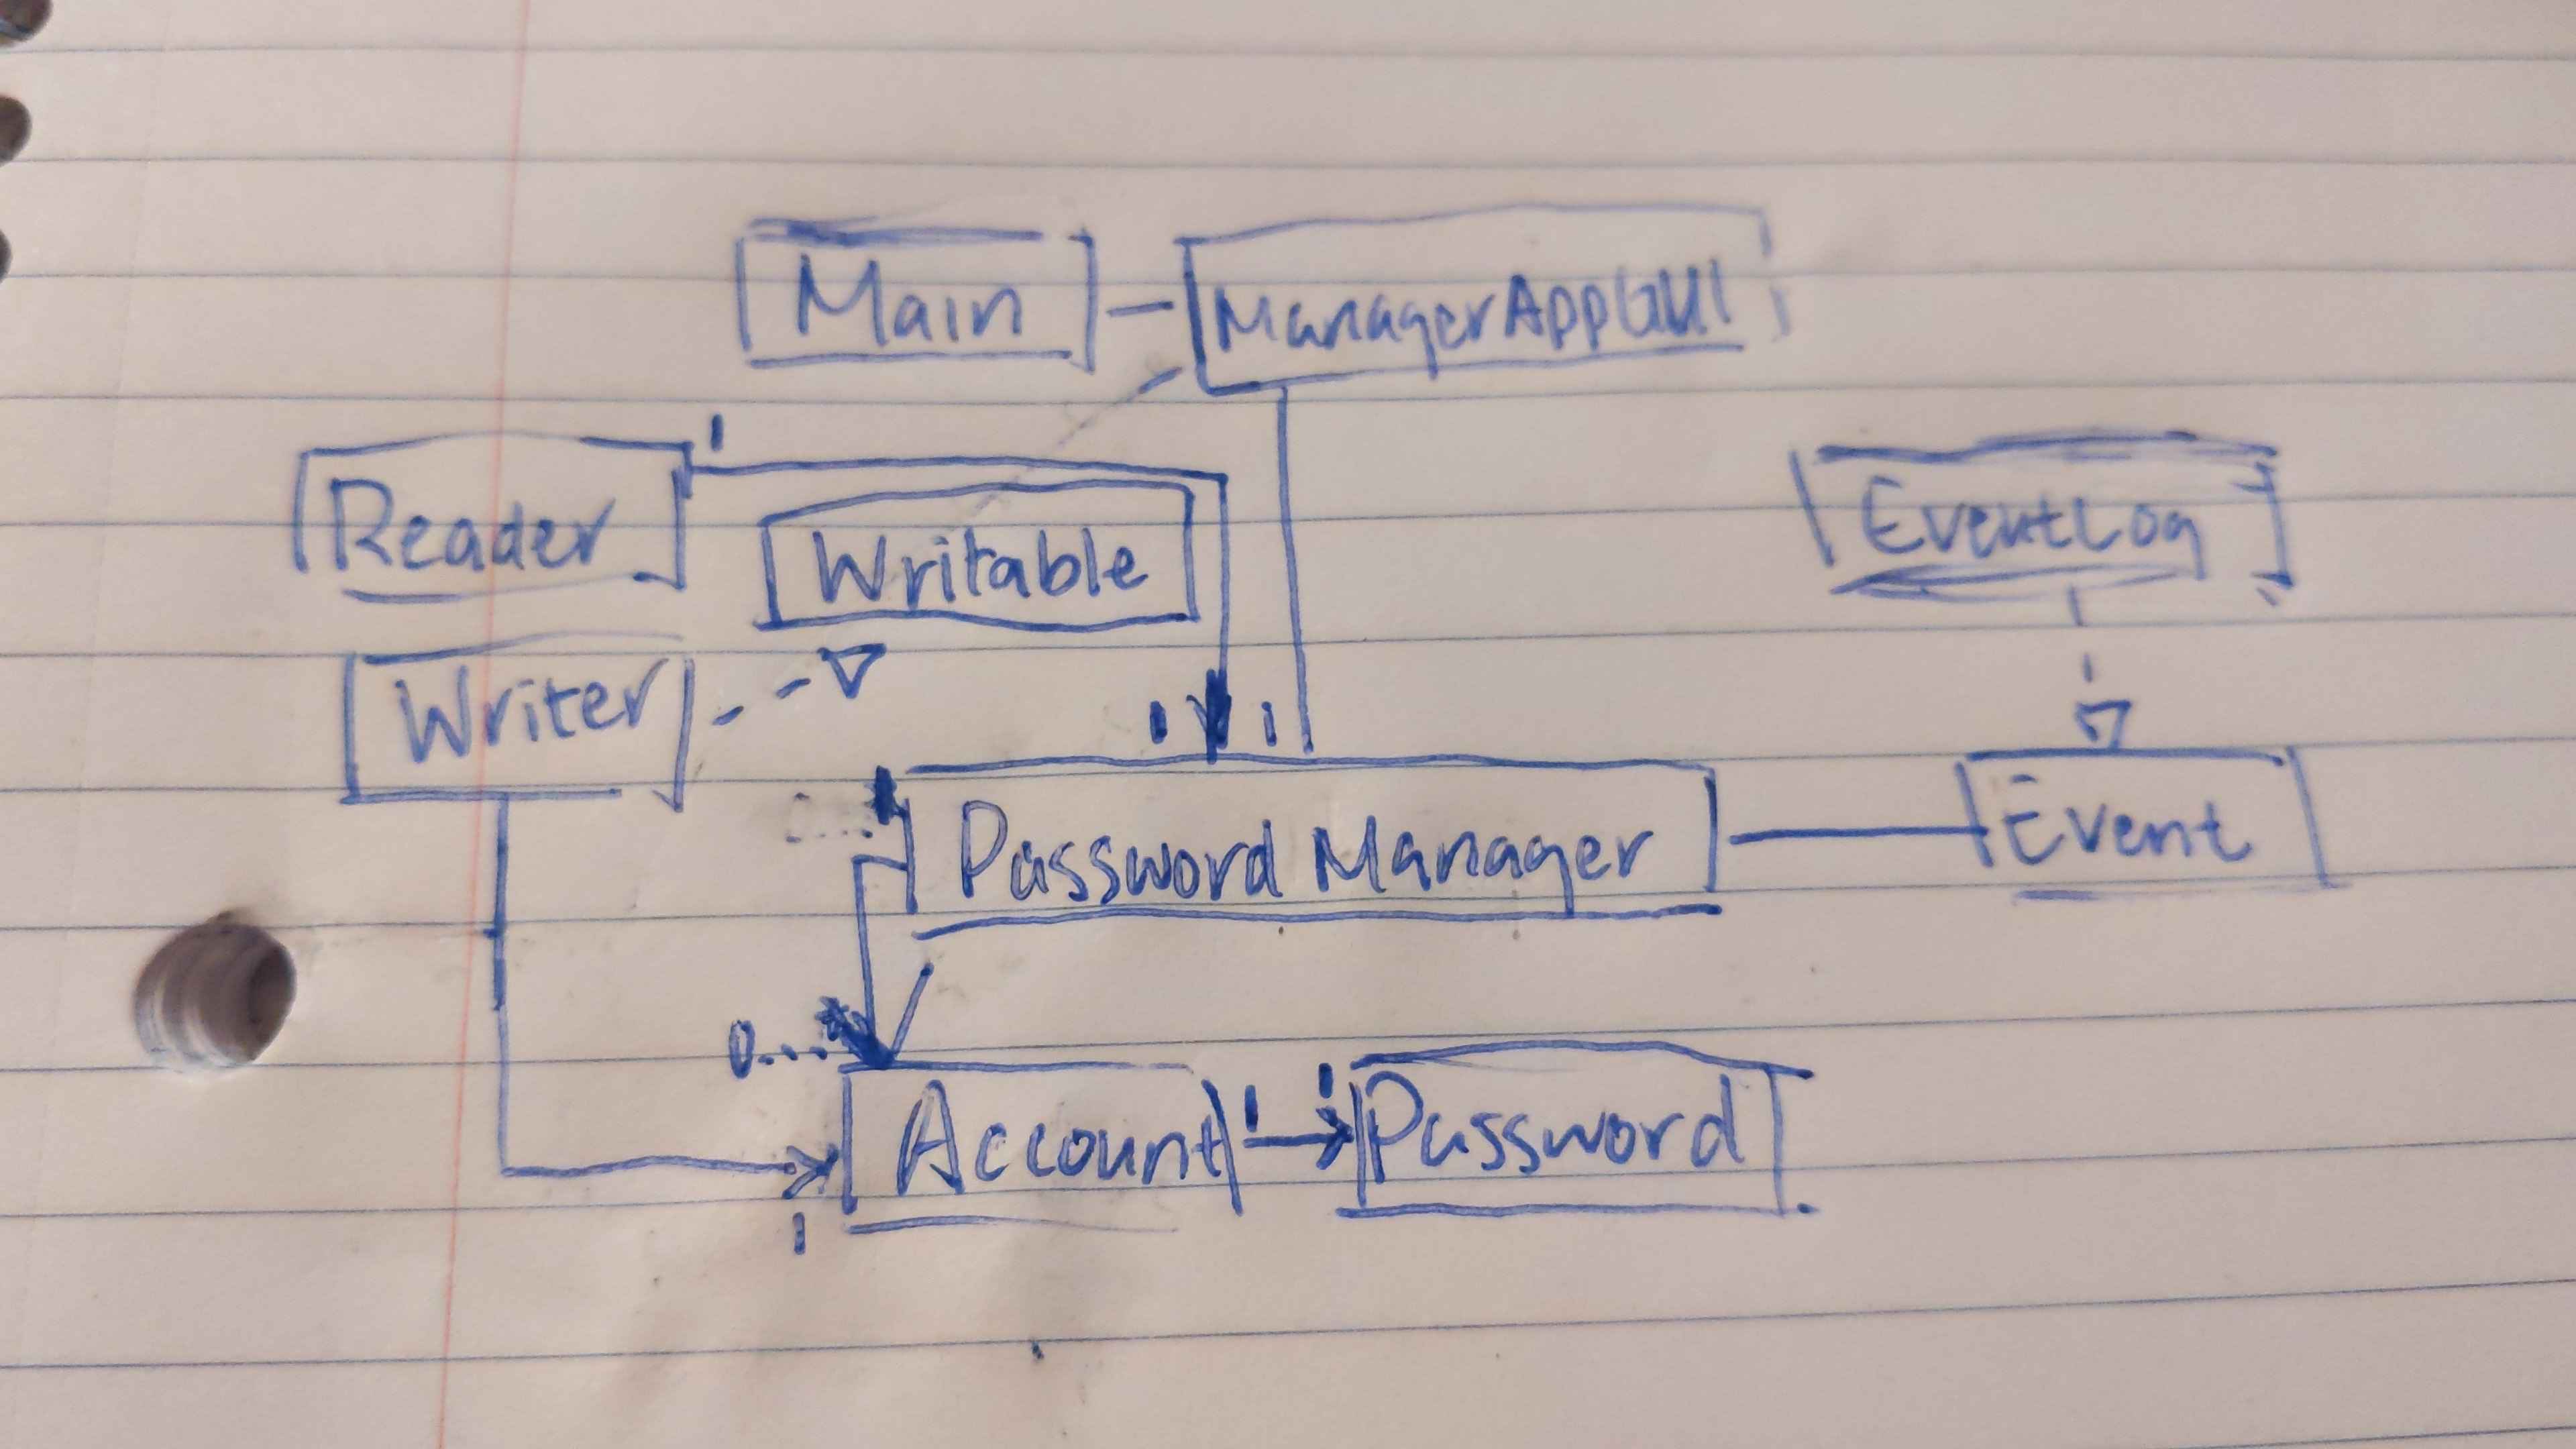 Main ManagerAppGUI
1
Reader
Writable
EventLog
Writer
1 1
Password Manager
Event
0...*
1 1
Account Password
1